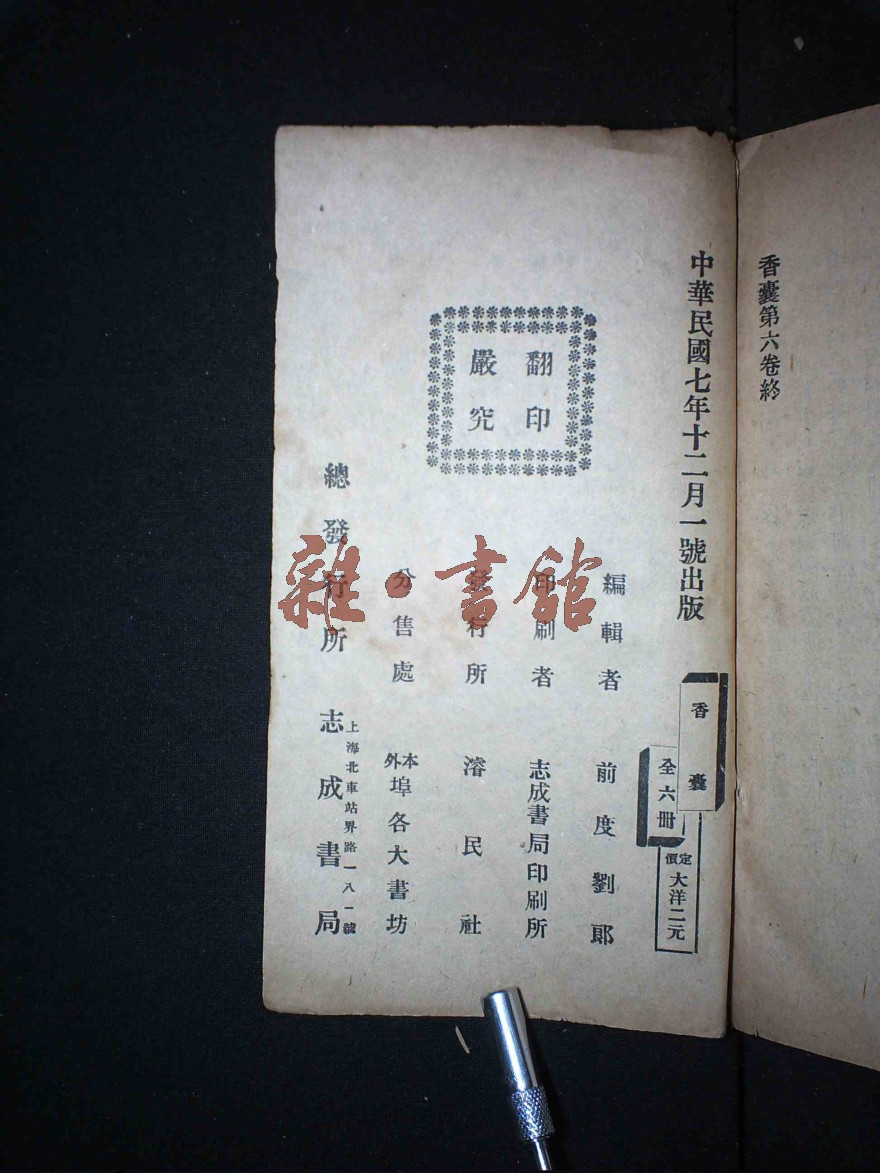 香囊第六卷終
中華民國七年十二月一號出版
香囊
全六冊
定價大洋二元
編輯者 前度劉郞
印刷者 志成書局印刷所
發行所 濬民社
分售處 本外埠各大書坊
總發行所 志成書局
上海北車站界路一八一號
翻印
嚴究
雜·書館